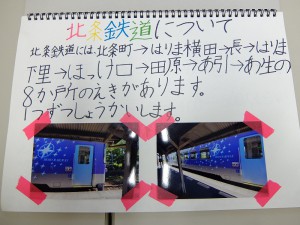 北条鉄道について
北条鉄道には、北条町→はりま横田→長→はりま
下里→ほっけ口→田原→あ引→あ生の
8か所のえきがあります。
1つずつしょうかいします。